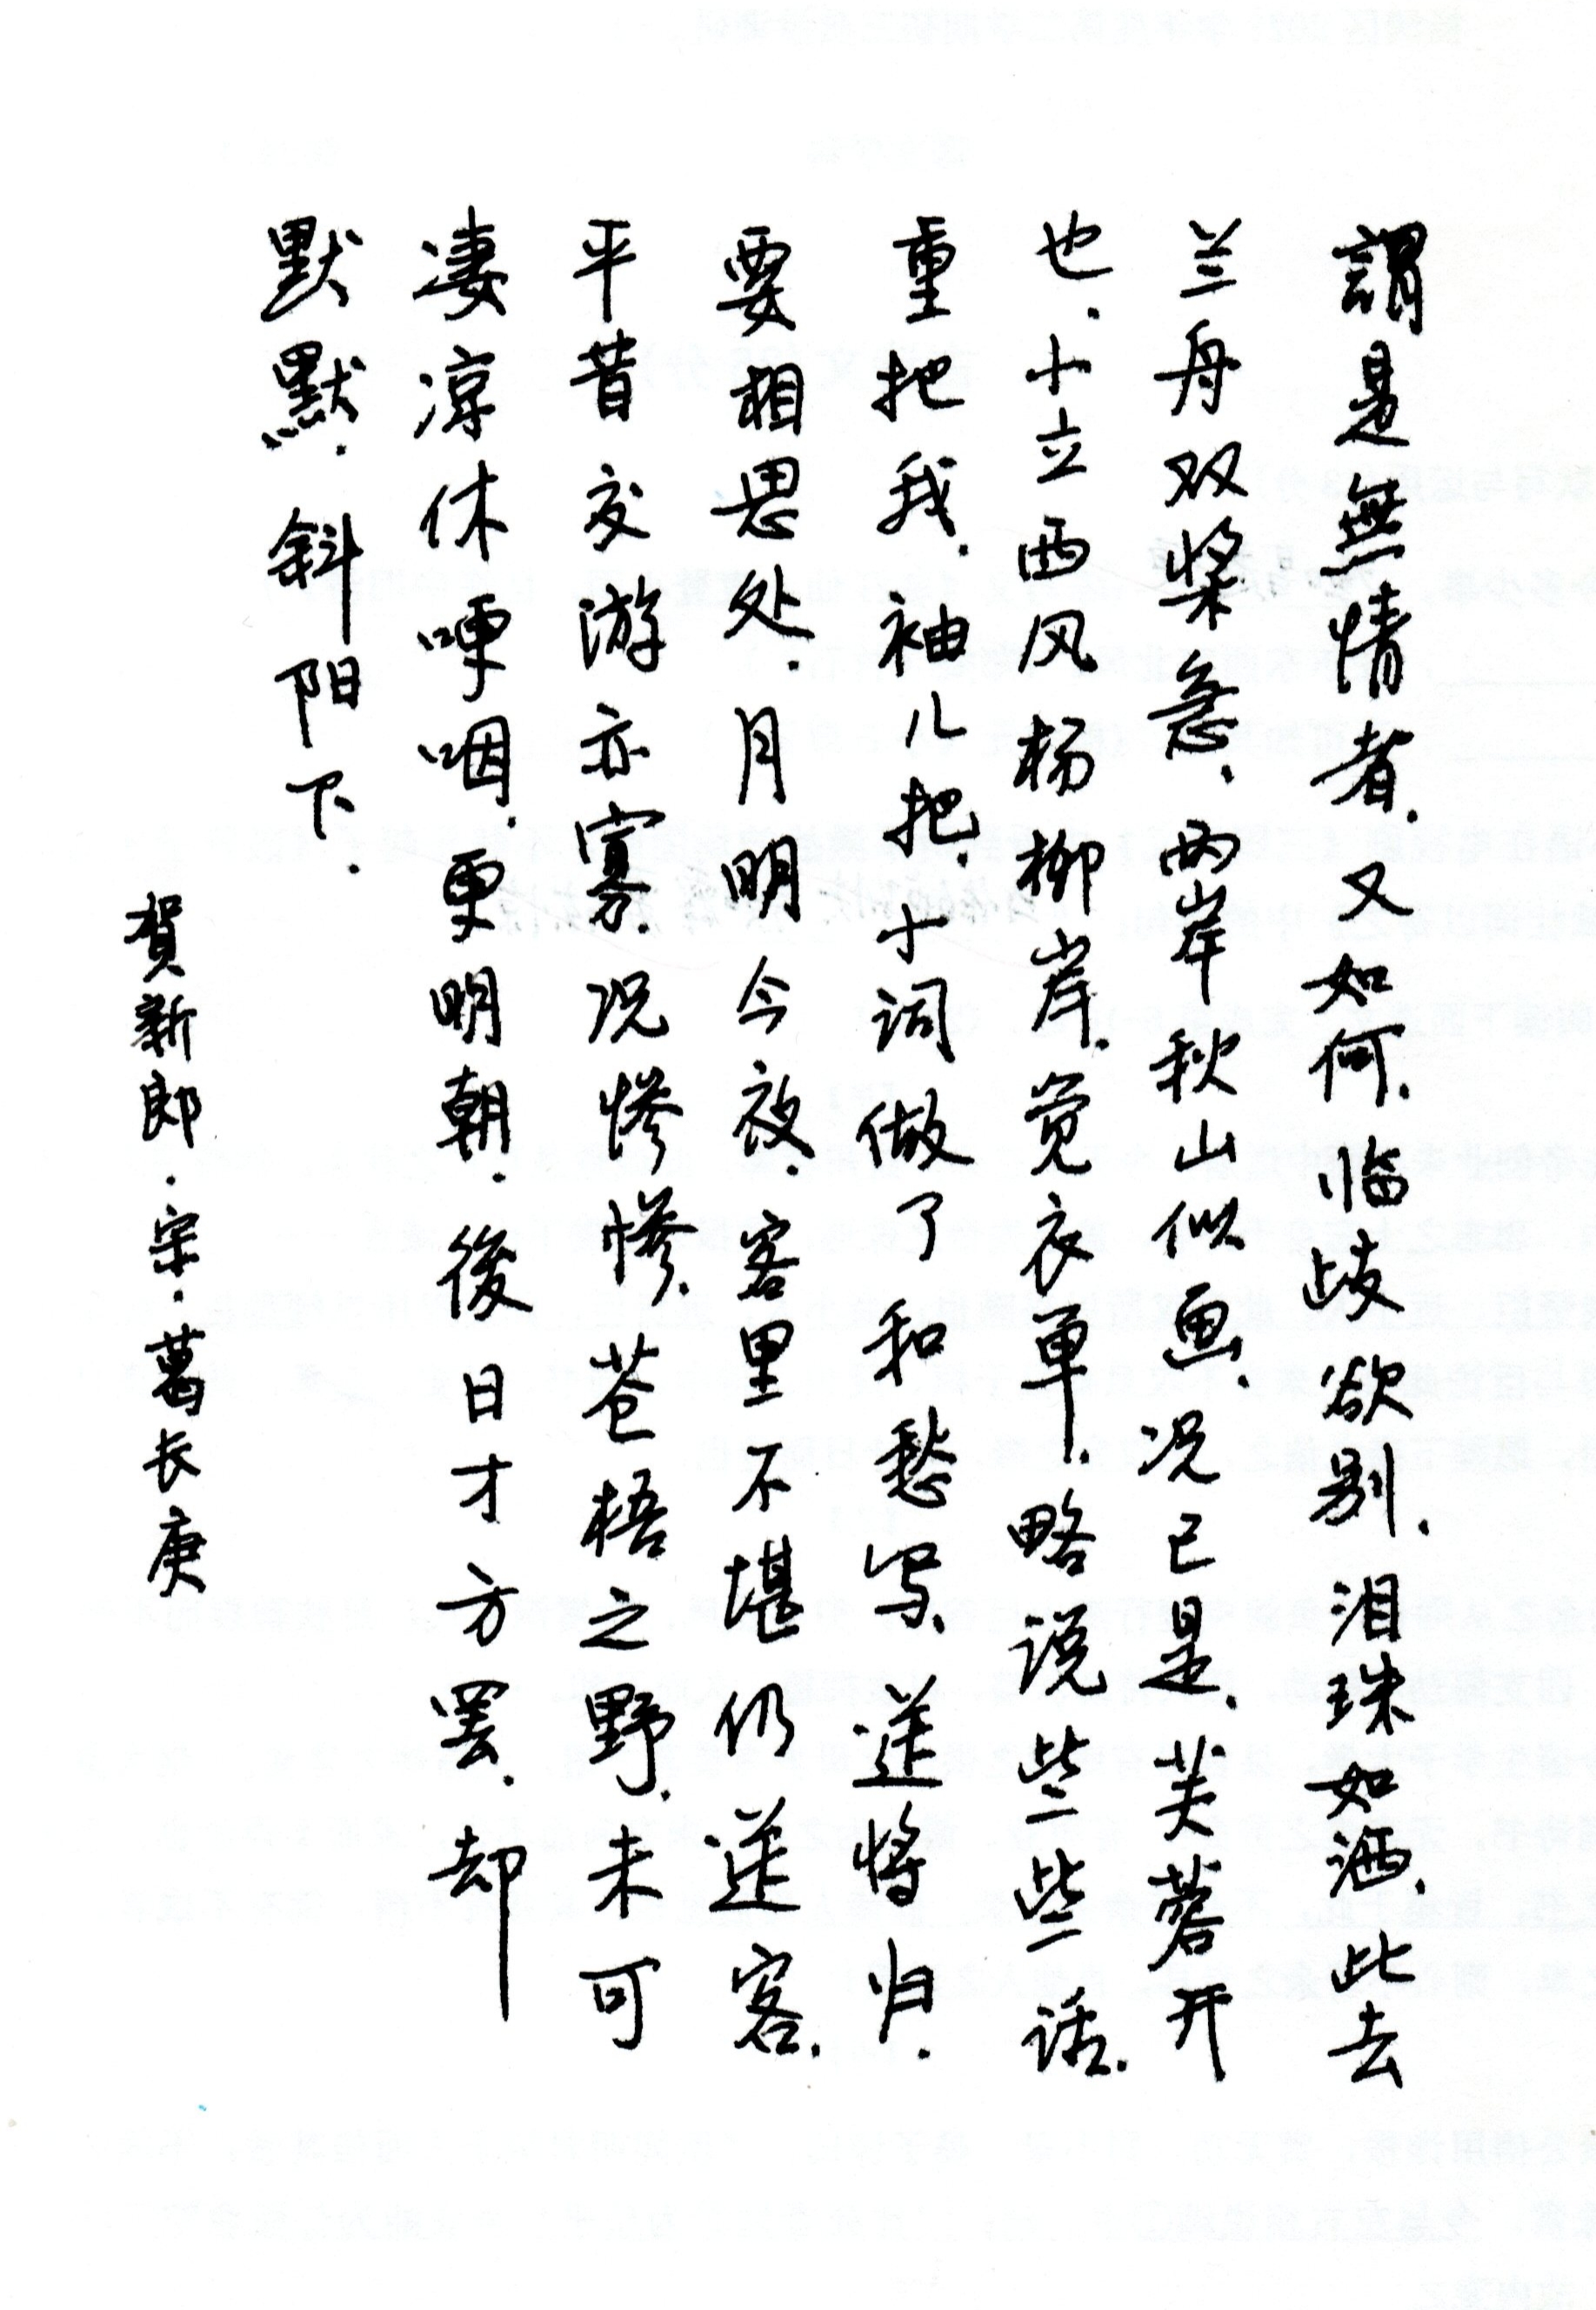 謂是無情者.又如何.临歧欲别.泪珠如洒.此去
兰舟双桨急.两岸秋山似画.况已是.芙蓉开
也.小立西风杨柳岸.觉衣单.略说些些话.
重把我.袖儿把.小词做了和愁写.送将归.
要相思处.月明今夜.客里不堪仍送客.
平昔交游亦寡.况惨惨.苍梧之野.未可
凄凉休哽咽.更明朝.後日才方罢.却
默默.斜阳下.
賀新郎·宗·葛长庚